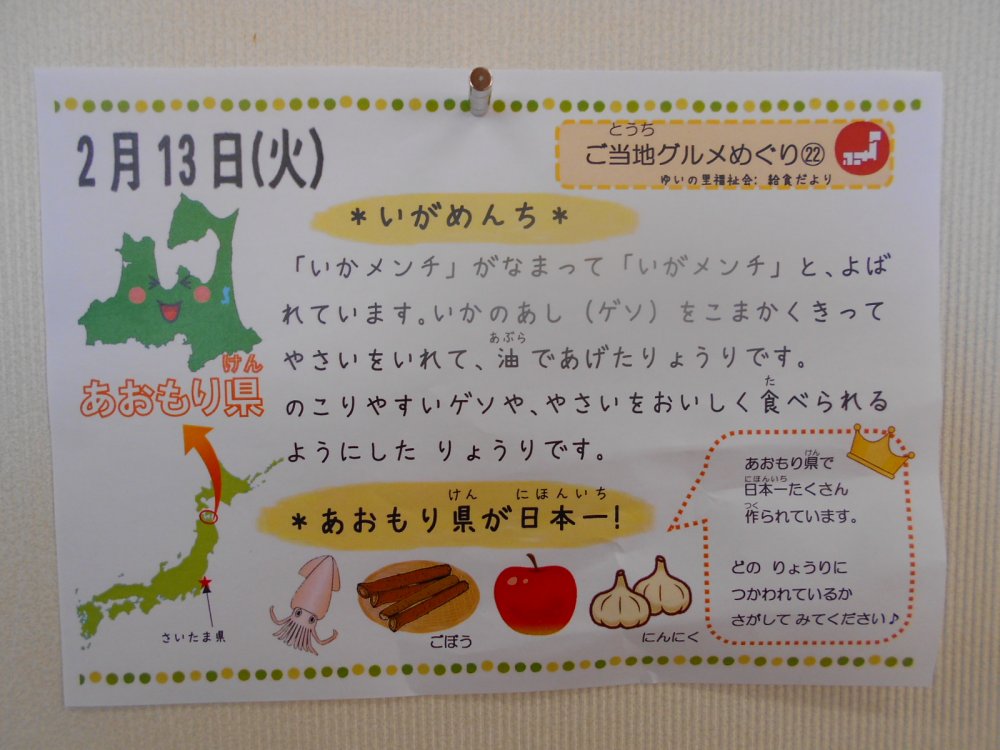 2月13日(火)
とうち
ご当地グルメめぐり㉒
ゆいの里福祉会: 給食だより
*いがめんち*
「いかメンチ」がなまって「いがメンチ」と、よば
れています。いかのあし(ゲソ)をこまかくきって
あぶら
やさいをいれて、油であげたりょうりです。
た
のこりやすいゲソや、やさいをおいしく食べられる
ようにした りょうりです。
けん
あおもり県
けん にほんいち
*あおもり県が日本一!
けん
あおもり県で
にほんいち
日本一たくさん
つく
作られています。
どの りょうりに
つかわれているか
さがして みてください♪
さいたま県
ごぼう
にんにく